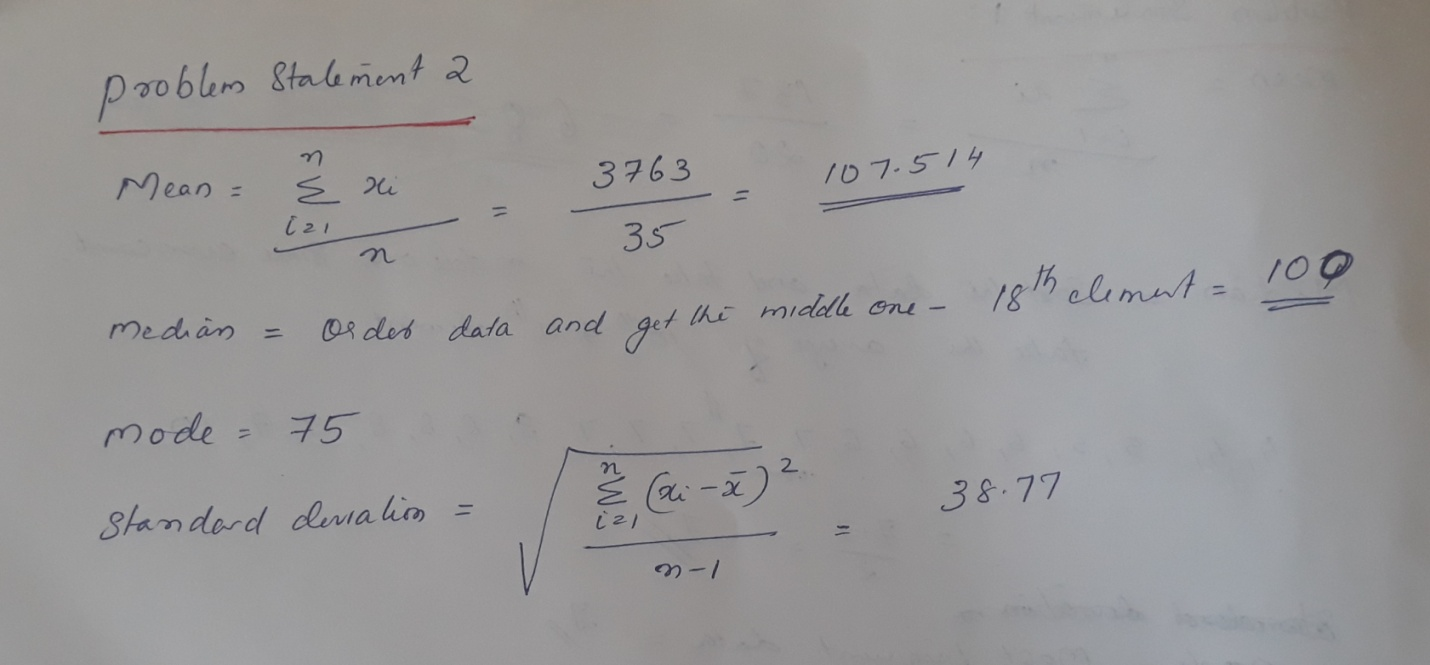 Problem Statement 2
Mean = n Σ i=1 xi / n = 3763 / 35 = 107.514
Median = Order data and get the middle one - 18th element = 100
mode = 75
Standard deviation = √ n Σ i=1 (xi - x̄)2 / n-1 = 38.77